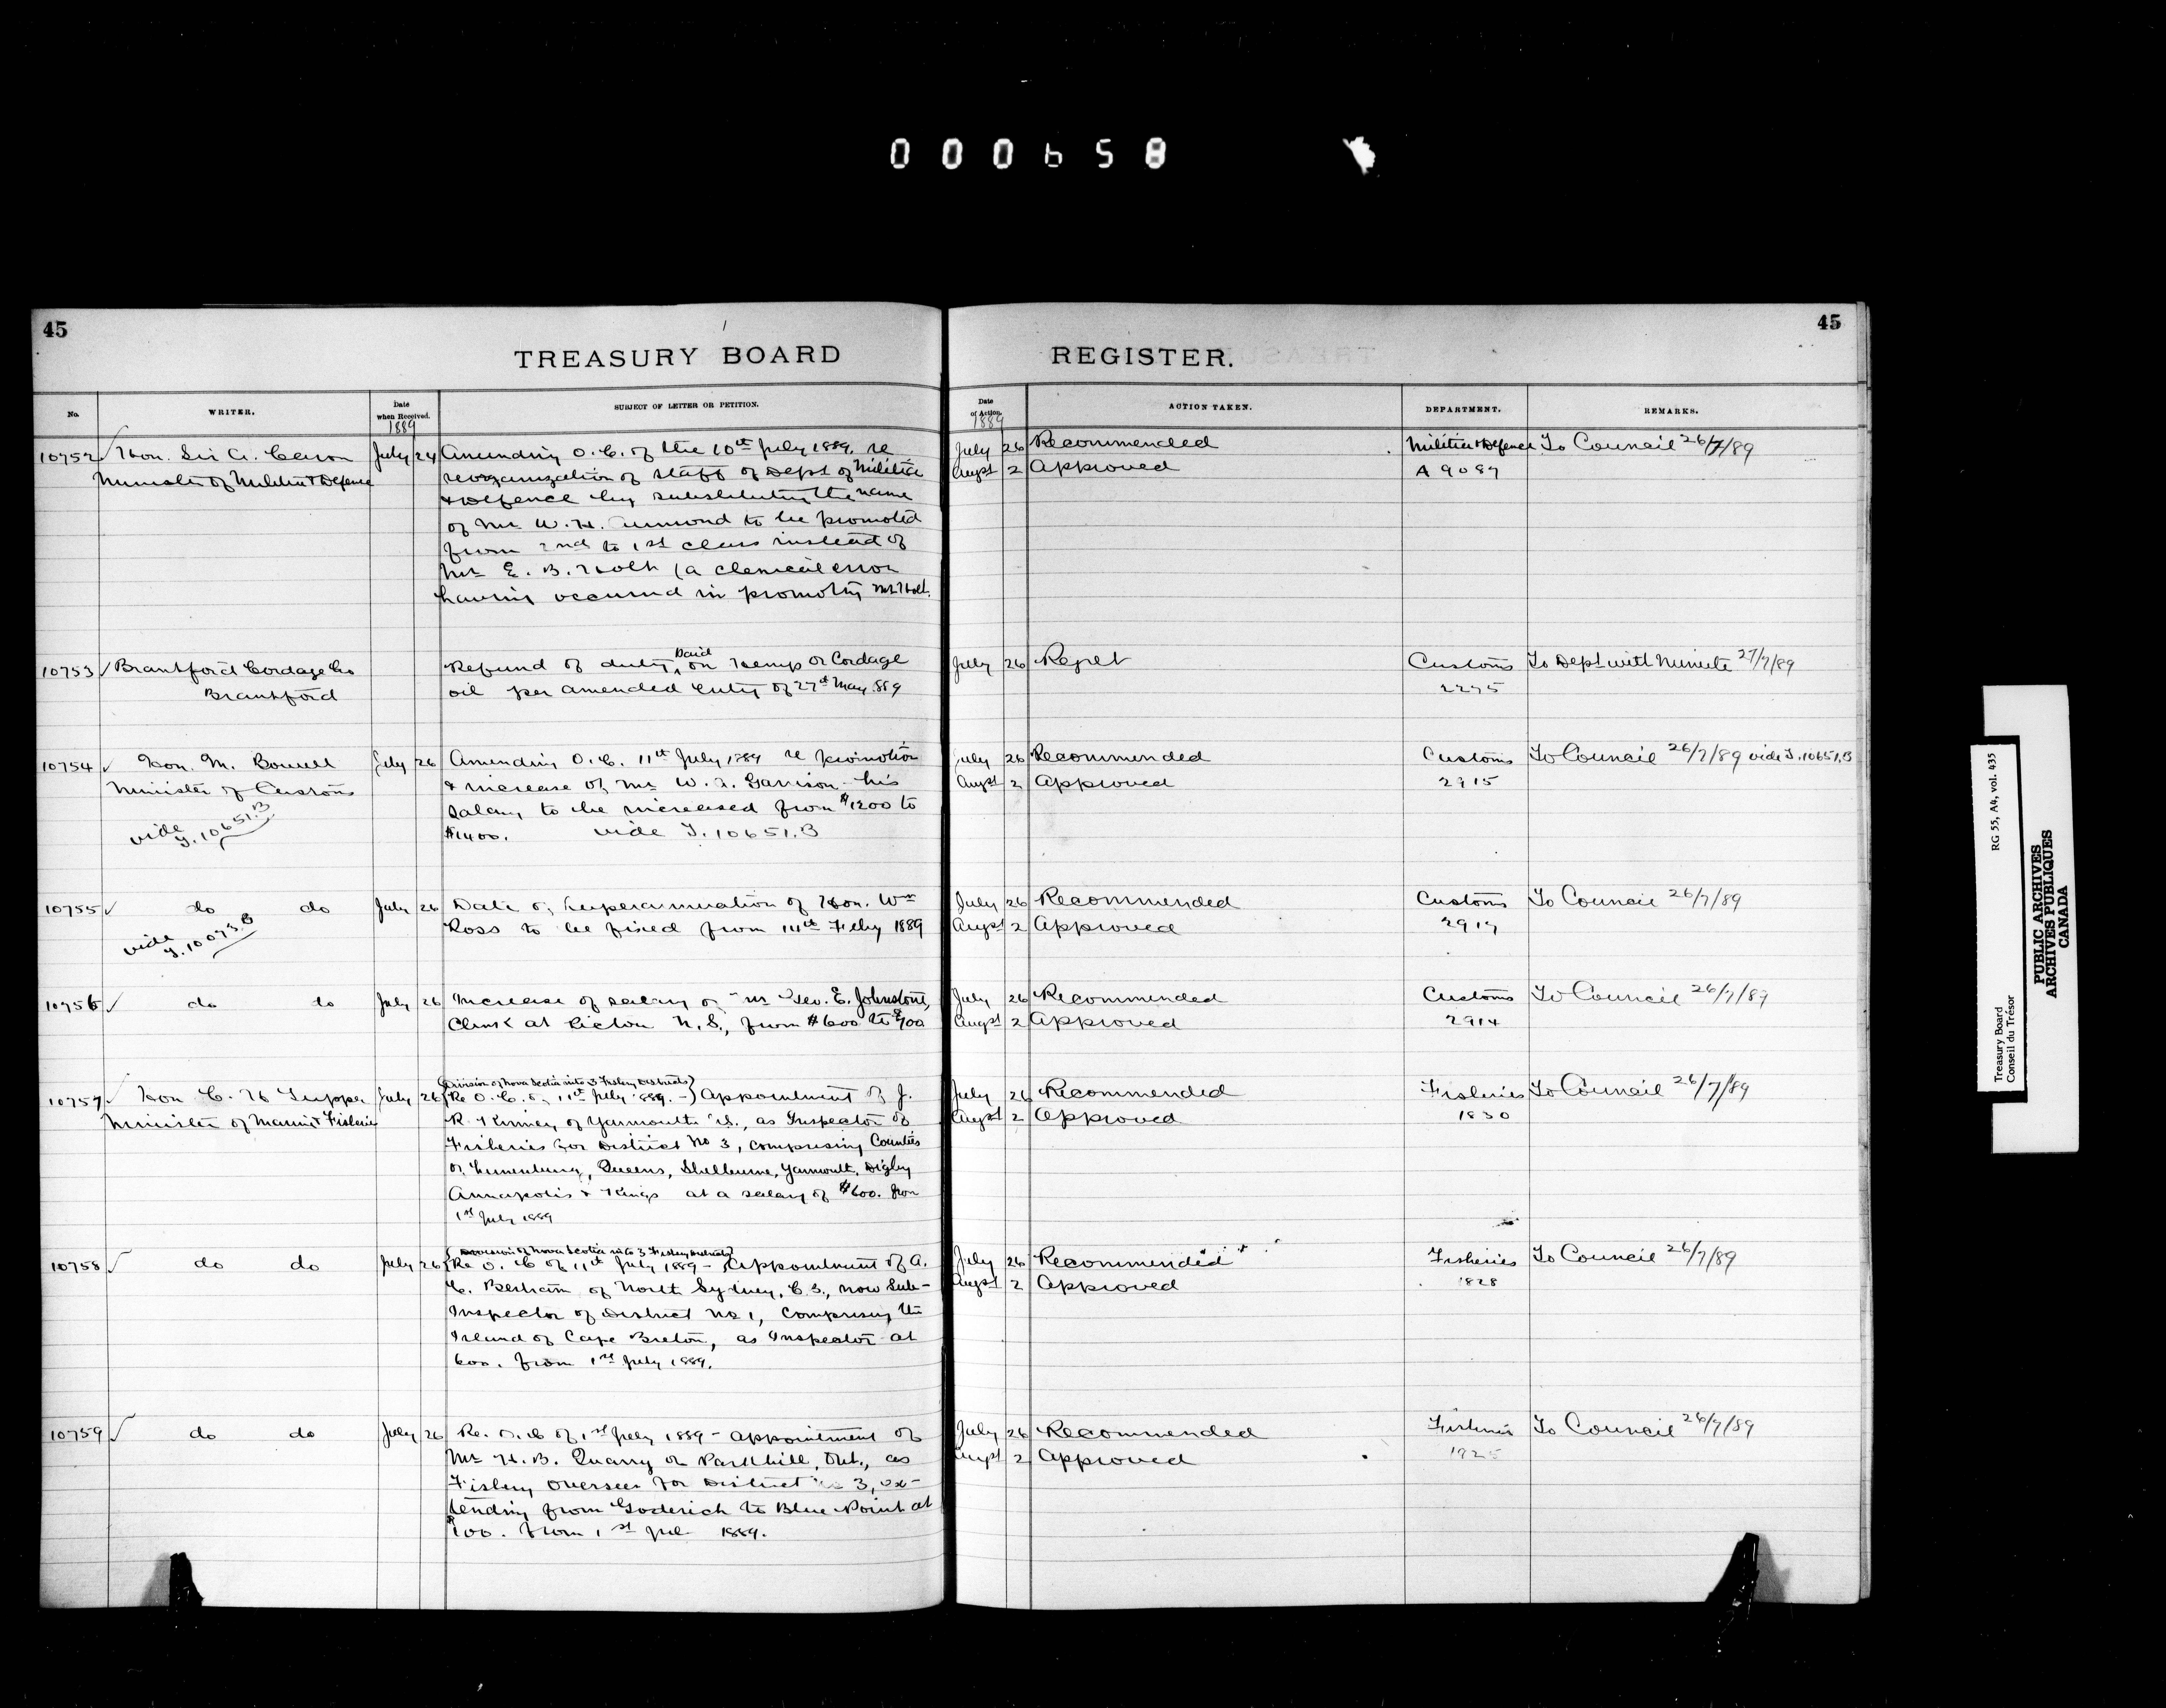 000658
45
45
TREASURY BOARD REGISTER.
No. WRITER. Date when Received. SUBJECT OF LETTER OR PETITION. Date of Action. ACTION TAKEN. DEPARTMENT. REMARKS.
1889 1889
10752 Hon. Sir A. Caron July 24 Amending O.C. of the 10th July 1889, re July 26 Recommended Militia & Defence To Council 26/7/89
Minister of Militia & Defence reorganization of staff of Dept of Militia Augst 2 Approved A 9089
& Defence by substituting the name
of Mr W. H. Aumond to be promoted
from 2nd to 1st class instead of
Mr E. B. Holt (a clerical error
having occurred in promoting Mr Holt.
10753 Brantford Cordage Co Refund of duty paid on Hemp or Cordage July 26 Regret Customs To Dept with Minute 27/7/89
Brantford oil per amended entry of 27th May 889 2275
10754 Hon. M. Bowell July 26 Amending O.C. 11th July 1889 re promotion July 26 Recommended Customs To Council 26/7/89 vide J.10651.B
Minister of Customs & increase of Mr W. A. Garrison his Augst 2 Approved 2915
salary to be increased from $1200 to
vide J.10651.B $1400. vide J.10651.B
10755 do do July 26 Date of Superannuation of Hon. Wm July 26 Recommended Customs To Council 26/7/89
vide J.10073.B Ross to be fixed from 14th Feby 1889 Augst 2 Approved 2917
10756 do do July 26 Increase of salary of Mr Geo. E. Johnstone, July 26 Recommended Customs To Council 26/7/89
Clerk at Pictou N.S., from $600 to $700 Augst 2 Approved 2914
(Division of Nova Scotia into 3 Fishery Districts)
10757 Hon C. H. Tupper July 26 Re O.C. of 11th July 1889. - Appointment of J. July 26 Recommended Fisheries To Council 26/7/89
Minister of Marine & Fisheries R. Kinney of Yarmouth N.S., as Inspector of Augst 2 Approved 1830
Fisheries for District No 3, comprising Counties
of Lunenburg, Queens, Shelburne, Yarmouth, Digby
Annapolis & Kings at a salary of $600. from
1st July 1889
(Division of Nova Scotia into 3 Fishery Districts)
10758 do do July 26 Re O.C. of 11th July 1889 - Appointment of A. July 26 Recommended Fisheries To Council 26/7/89
C. Bertram of North Sydney, C.B., now Sub- Augst 2 Approved 1828
Inspector of District No 1, comprising the
Island of Cape Breton, as Inspector at
600. from 1st July 1889.
10759 do do July 26 Re. O.C. of 1st July 1889 - Appointment of July 26 Recommended Fisheries To Council 26/7/89
Mr H. B. Quarry of Parkhill, Ont., as Augst 2 Approved
Fishery Overseer for District No 3, ex-
tending from Goderich to Blue Point at
$100. from 1st July 1889.
Treasury Board
Conseil du Trésor
RG 55, A4, vol. 435
PUBLIC ARCHIVES
ARCHIVES PUBLIQUES
CANADA